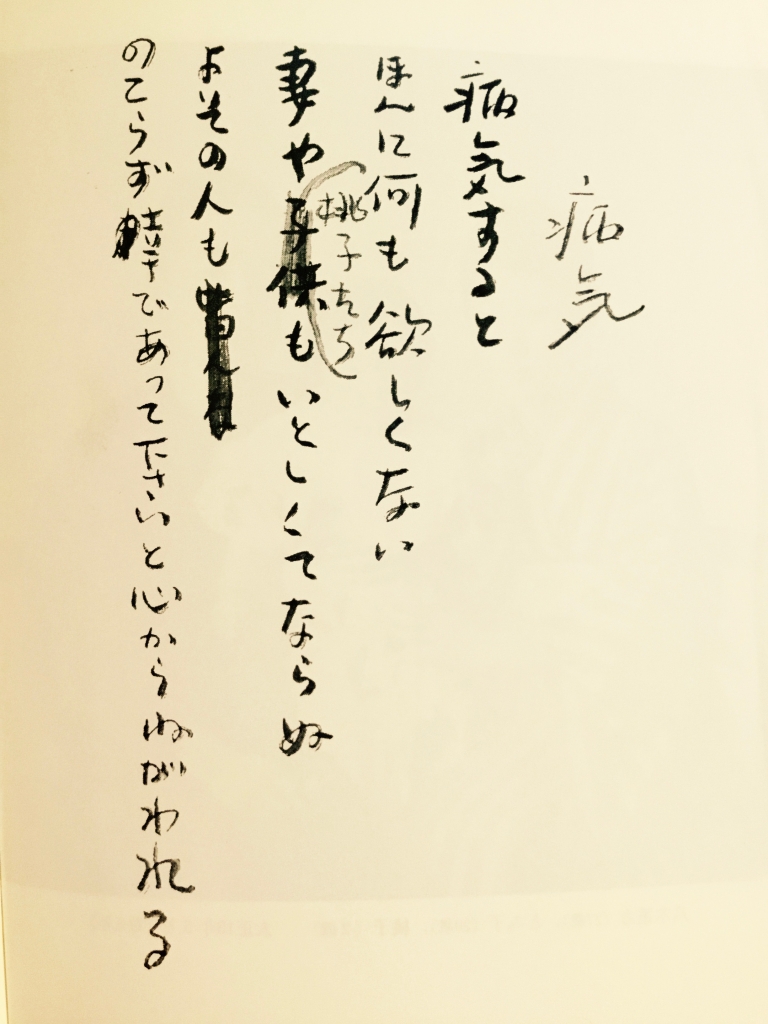 病気
病気すると
ほんに何も欲しくない
桃子たち
妻や子供もいとしくてならぬ
よその人も
のこらず幸であって下さいと心からねがわれる